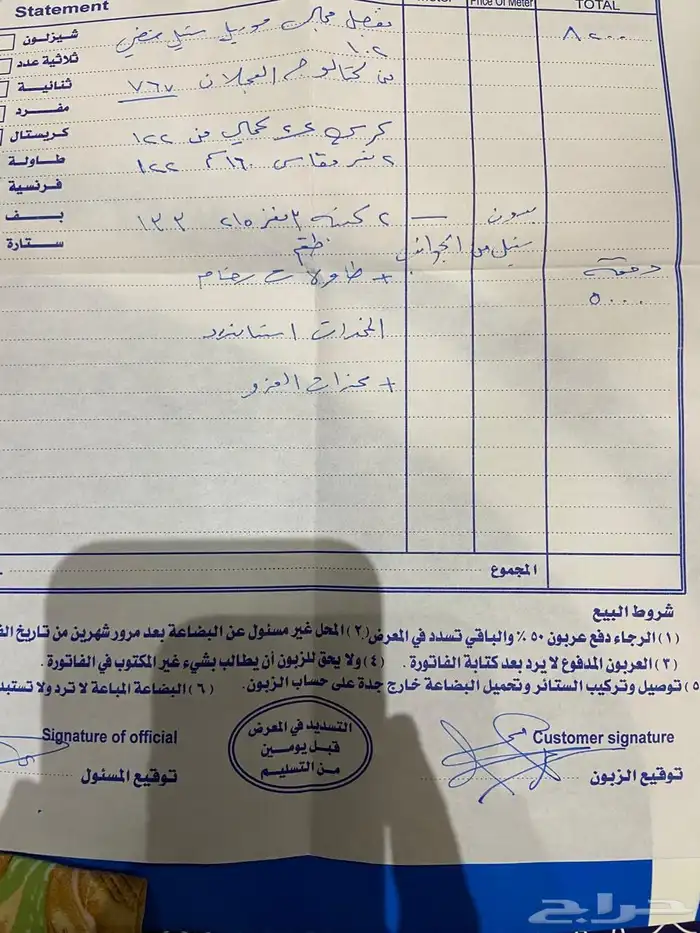 Statement
Price Of Meter
TOTAL
شيزلون
ثلاثية عدد
ثنائية
مفرد
كريستال
طاولة
فرنسية
بف
ستارة
تفصل مجلس موديل ستيل فضي
٨٢٠٠
١٠٢
من كتالوج العجلان ٧٦٧
كرسي عدد ٢ من ١٢٢
٢ نفر مقاس ١٦٠ ١٢٢
٢ كنبه ٣ نفر ٢١٥ ١٣٣
بدون
ستيل من الجوانب
طقم
+ طاولات رخام
دفعة
٥٠٠٠
المخدات استاندرد
+ مخدات الفرو
المجموع
شروط البيع
(١) الرجاء دفع عربون ٥٠٪ والباقي تسدد في المعرض (٢) المحل غير مسئول عن البضاعة بعد مرور شهرين من تاريخ
(٣) العربون المدفوع لا يرد بعد كتابة الفاتورة. (٤) ولا يحق للزبون أن يطالب بشيء غير المكتوب في الفاتورة.
(٥) توصيل وتركيب الستائر وتحميل البضاعة خارج جدة على حساب الزبون. (٦) البضاعة المباعة لا ترد ولا تستبد
التسديد في المعرض
قبل يومين
من التسليم
Signature of official
Customer signature
توقيع المسئول
توقيع الزبون
حراج